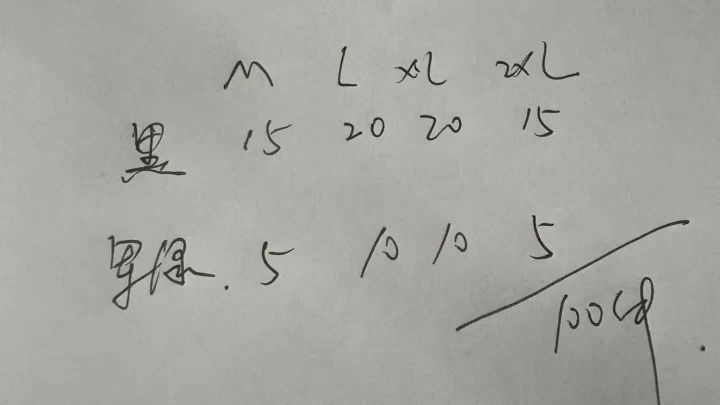 M L XL 2XL
黑 15 20 20 15
军绿. 5 10 10 5
100件